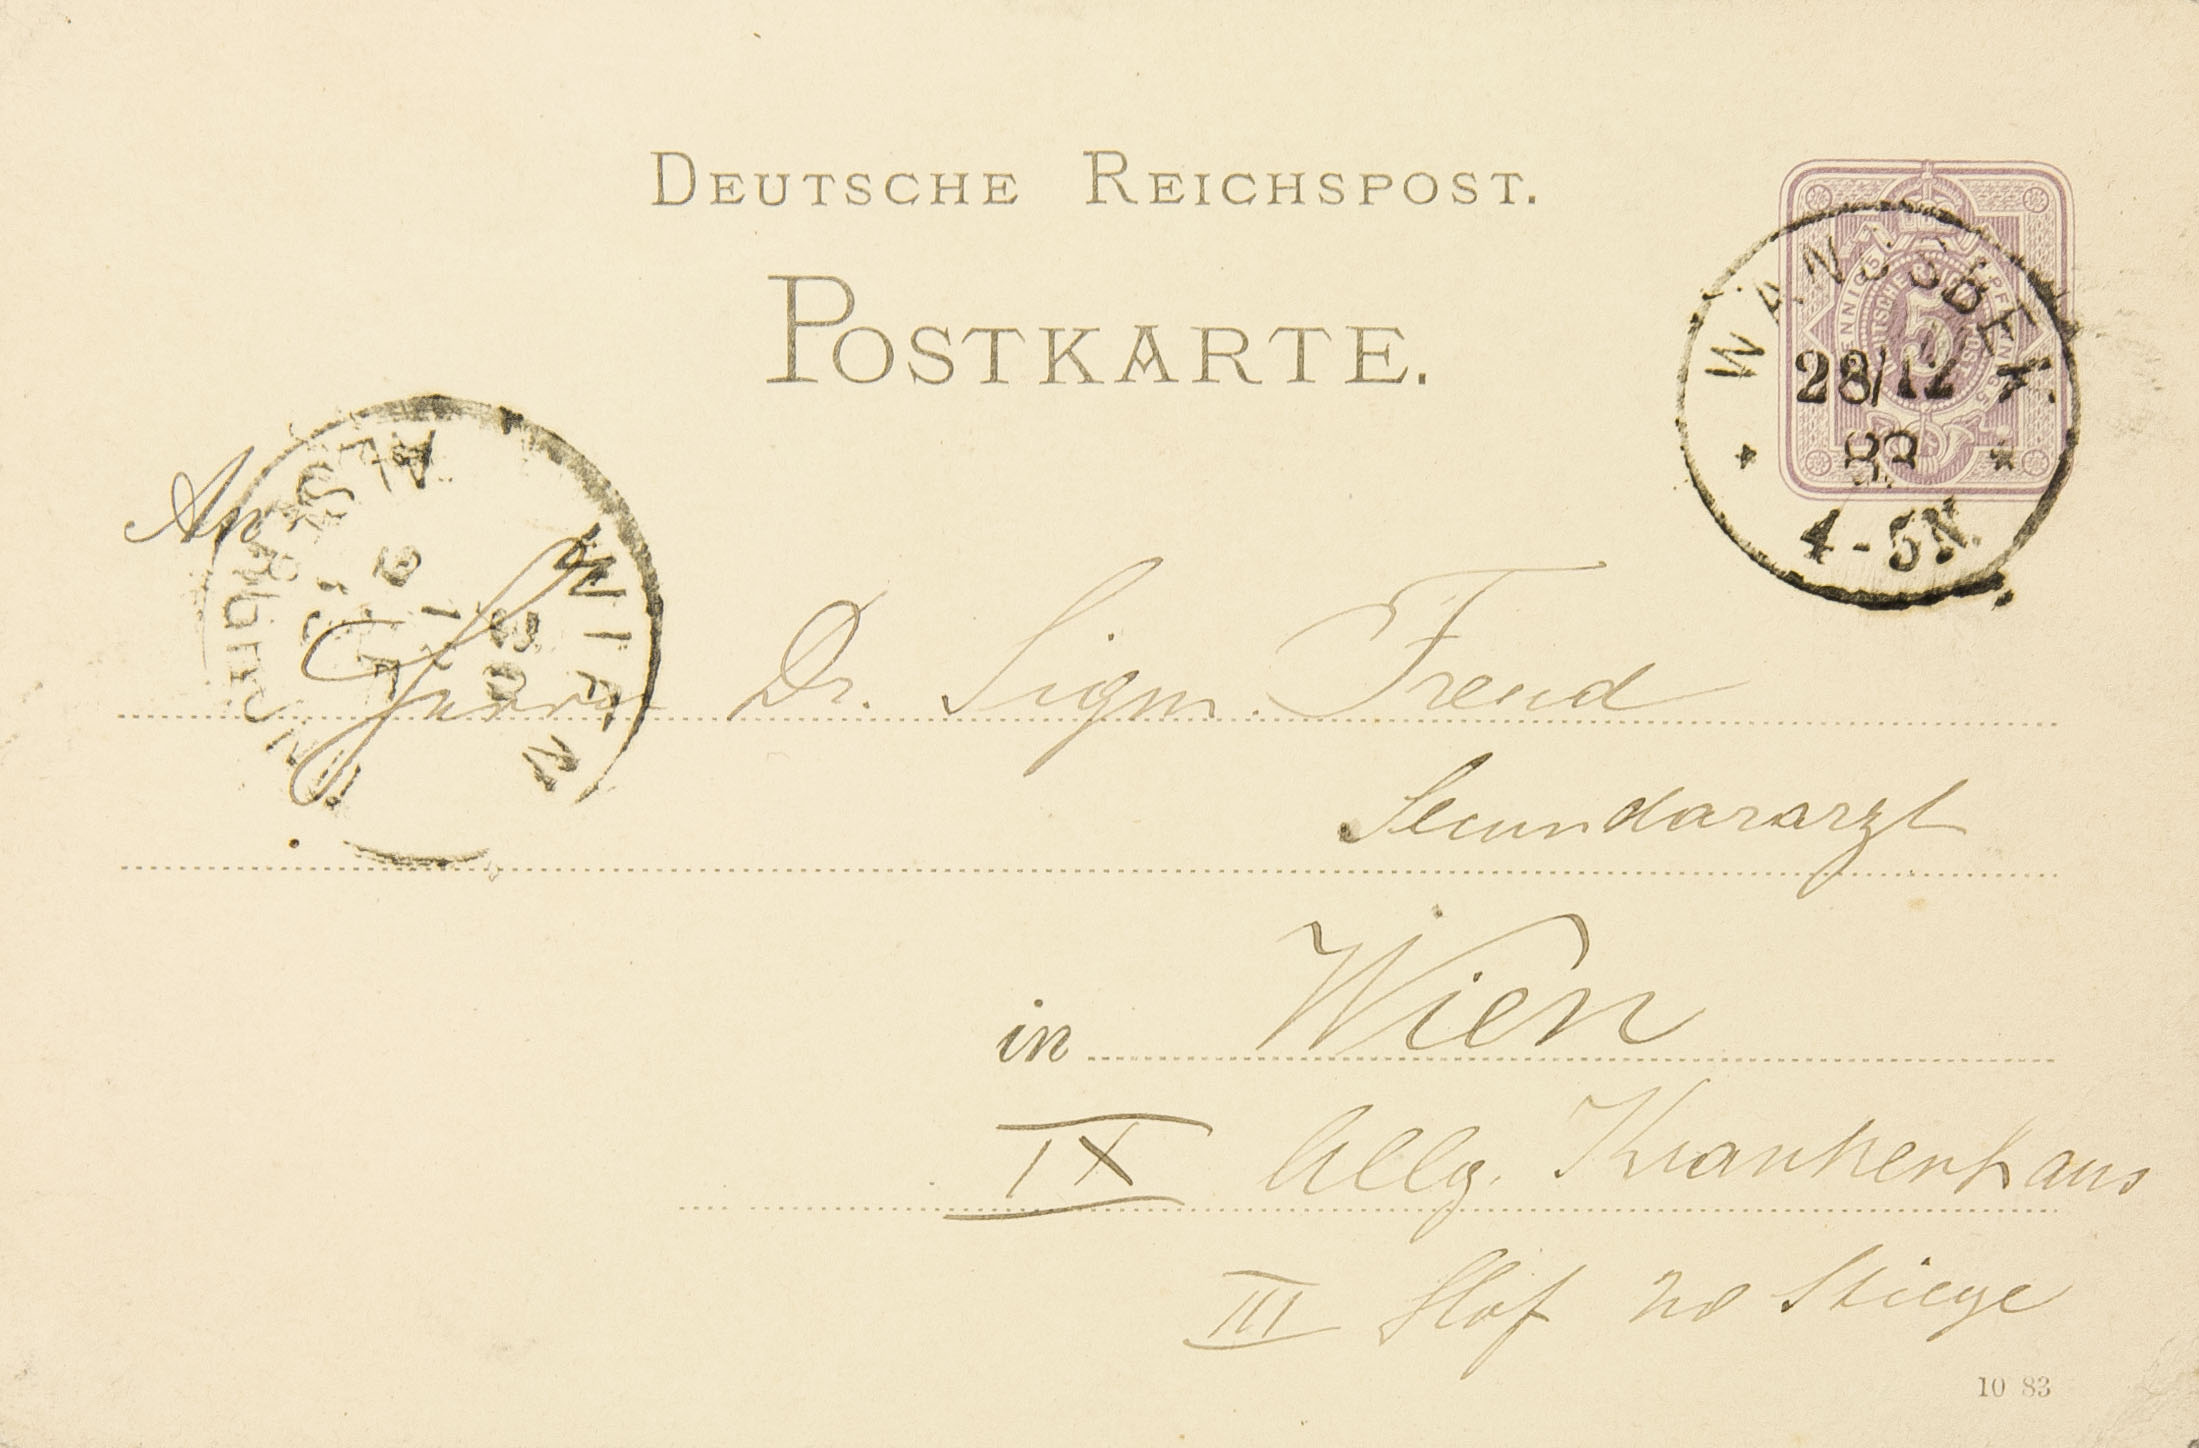 DEUTSCHE REICHSPOST.
POSTKARTE.
WANDSBEK.
28/12
83
4-5N.
WIEN
An
Herrn Dr. Sigm. Freud
Secundararzt
in Wien
IX Allg. Krankenhaus
III Hof Stiege
10 83